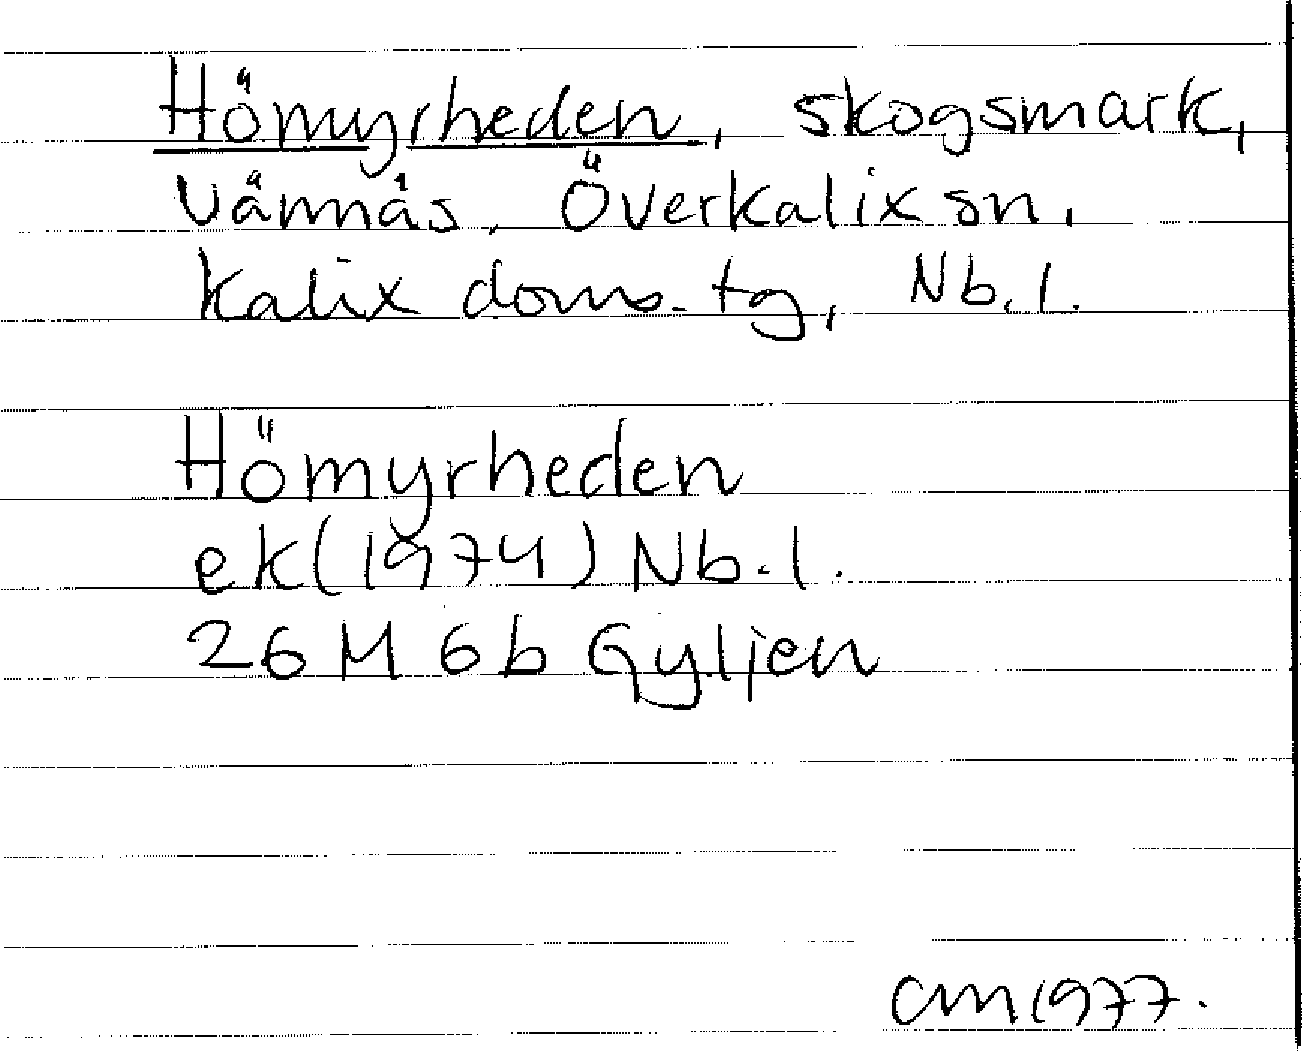 Hömyrheden, skogsmark,
Vännäs, Överkalix sn,
Kalix doms. tg, Nb. l.
Hömyrheden
ek (1974) Nb. l.
26 M 6b Gyljen
CM 1977.